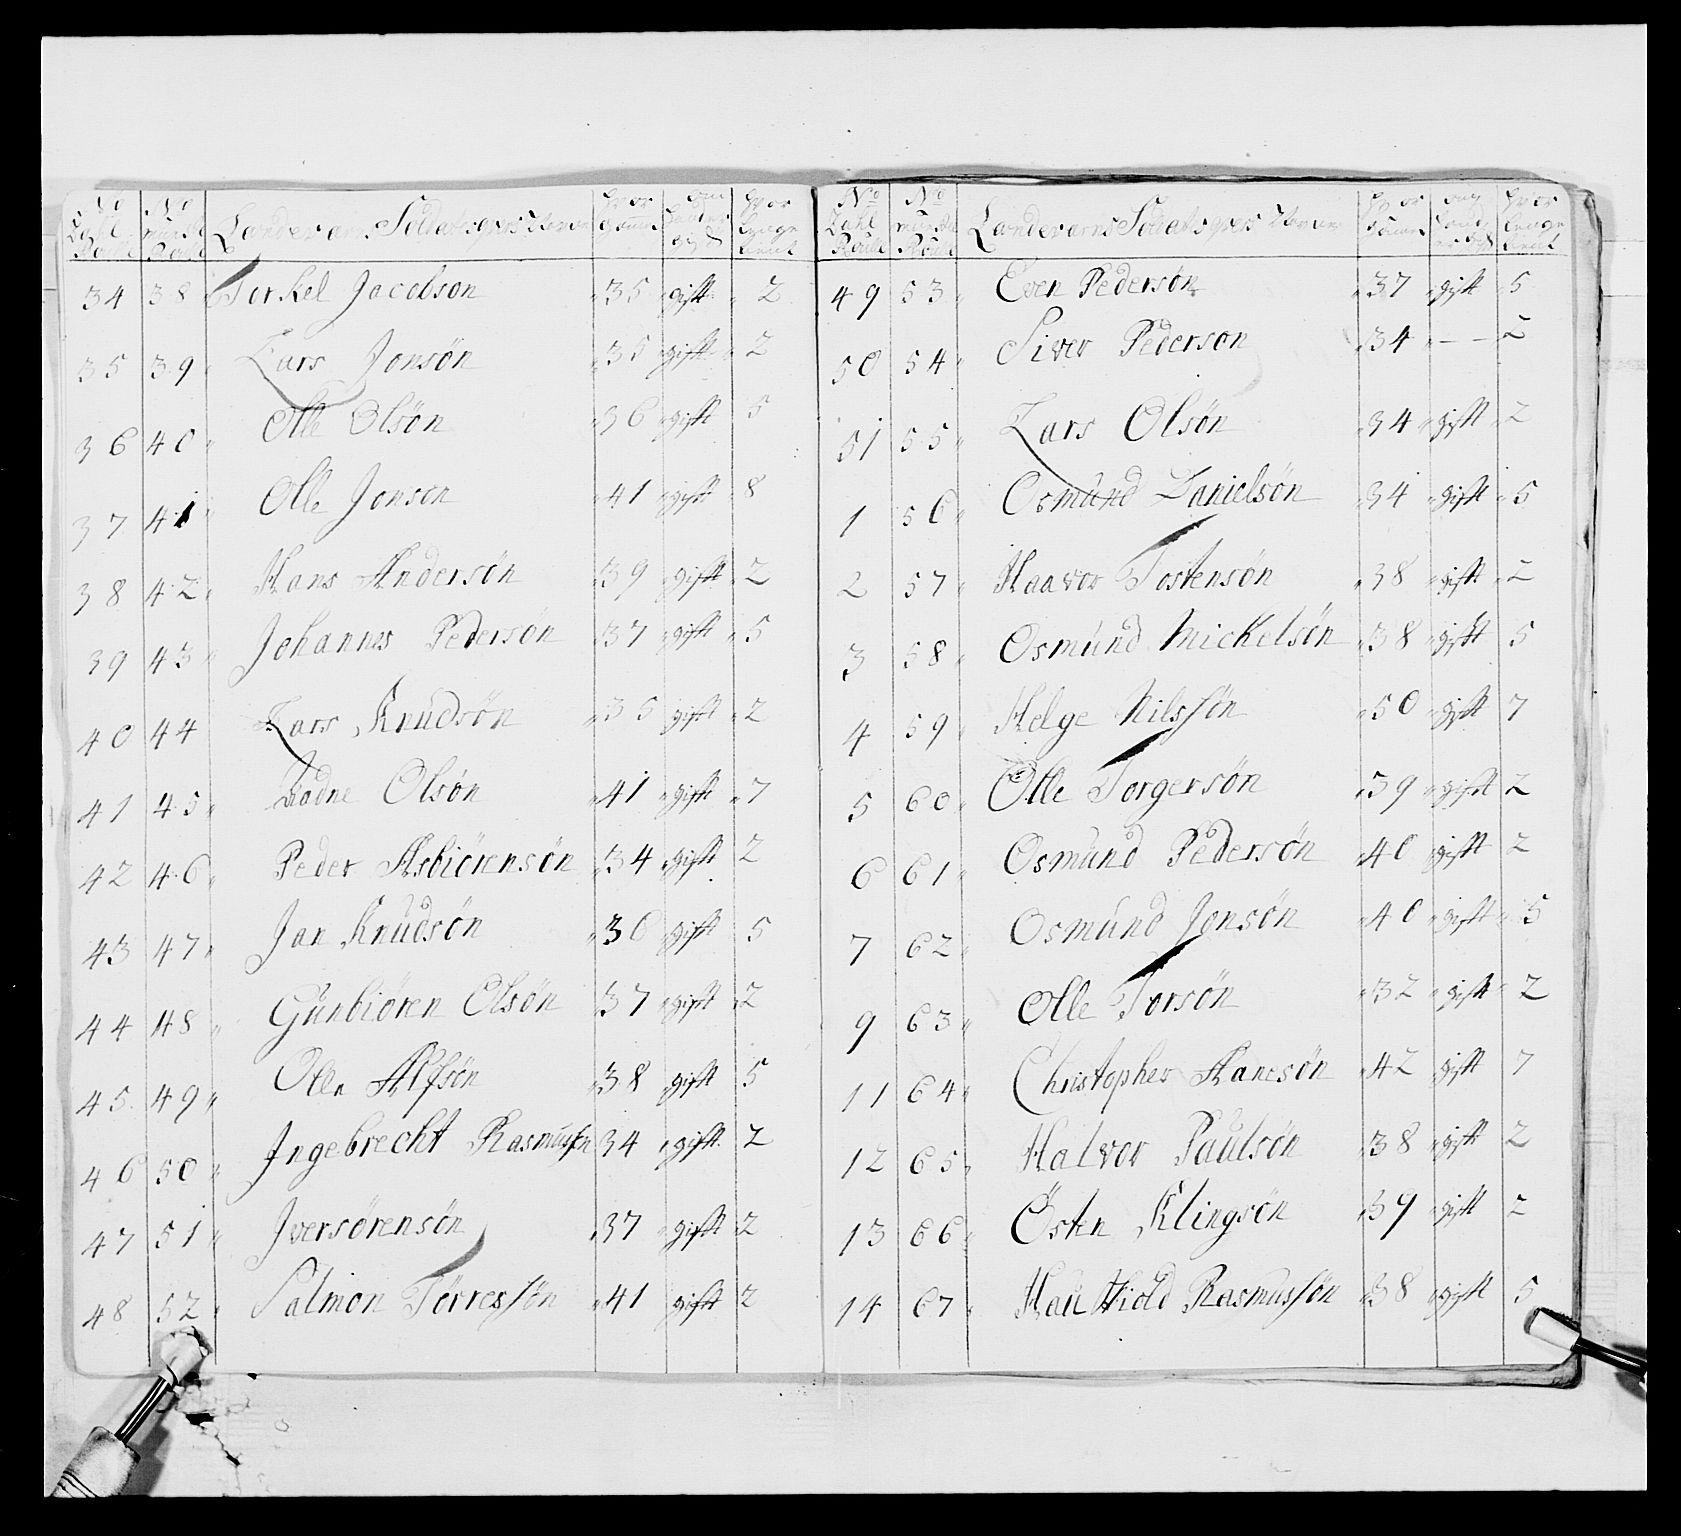 No No Landevarns Soldaternes Navne hvor om hvor
34 38 Torkel Jacobson 35 gift 2
35 39 Lars Jonsøn 35 gift 2
36 40 Olle Olsøn 36 gift 5
37 41 Olle Jonson 41 gift 8
38 42 Hans Andersøn 39 gift 2
39 43 Johannes Pedersøn 37 gift 5
40 44 Lars Knudsøn 35 gift 2
41 45 Aadne Olsøn 41 gift 7
42 46 Peder Asbiörensön 34 gift 2
43 47 Jan Knudsøn 36 gift 5
44 48 Günbiören Olsøn 37 gift 2
45 49 Olla Alfsön 38 gift 5
46 50 Ingebrecht Rasmussen 34 gift 2
47 51 Iversørensøn 37 gift 2
48 52 Salmon Törressön 41 gift 2
No No Landevarns Soldaternes Navne
49 53 Even Pedersøn 37 gift 5
50 54 Siver Pederson 34 - - 2
51 55 Lars Olsøn 34 gift 2
1 56 Osmund Danielsøn 34 gift 5
2 57 Haavor Tostensön 38 gift 2
3 58 Osmund Mickelsön 38 gift 5
4 59 Helge Nilssøn 50 gift 7
5 60 Olle Torgersøn 39 gift 2
6 61 Osmund Pedersön 40 gift 2
7 62 Osmund Jonsön 40 gift 5
9 63 Olle Torsön 32 gift 2
11 64 Christopher Hansøn 42 gift 7
12 65 Halvor Paulsön 38 gift 2
13 66 Östen Klingsön 39 gift 2
14 67 Hau Hiold Rasmussön 38 gift 5